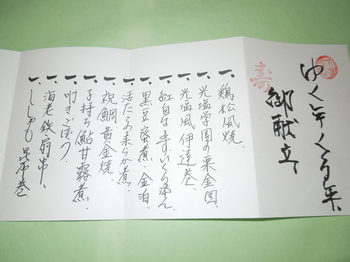 ゆく年くる年
御献立
寿
一、鶏松風焼、
一、光塩学園の栗金団
一、光塩風伊達巻、
一、紅白なますいくら
一、黒豆蜜煮、金泊
一、活たこ柔らか煮、
一、祝鯛黄金焼
一、子持ち鮎甘露煮
一、叩きごぼう、
一、海老銭扇串、
一、ししゃも昆布巻